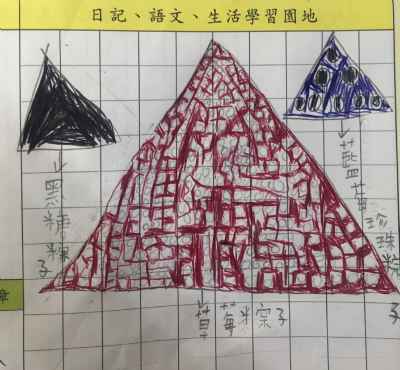 日記、語文、生活學習園地
黑糖粽子
藍莓
珍珠粽子
草莓粽子